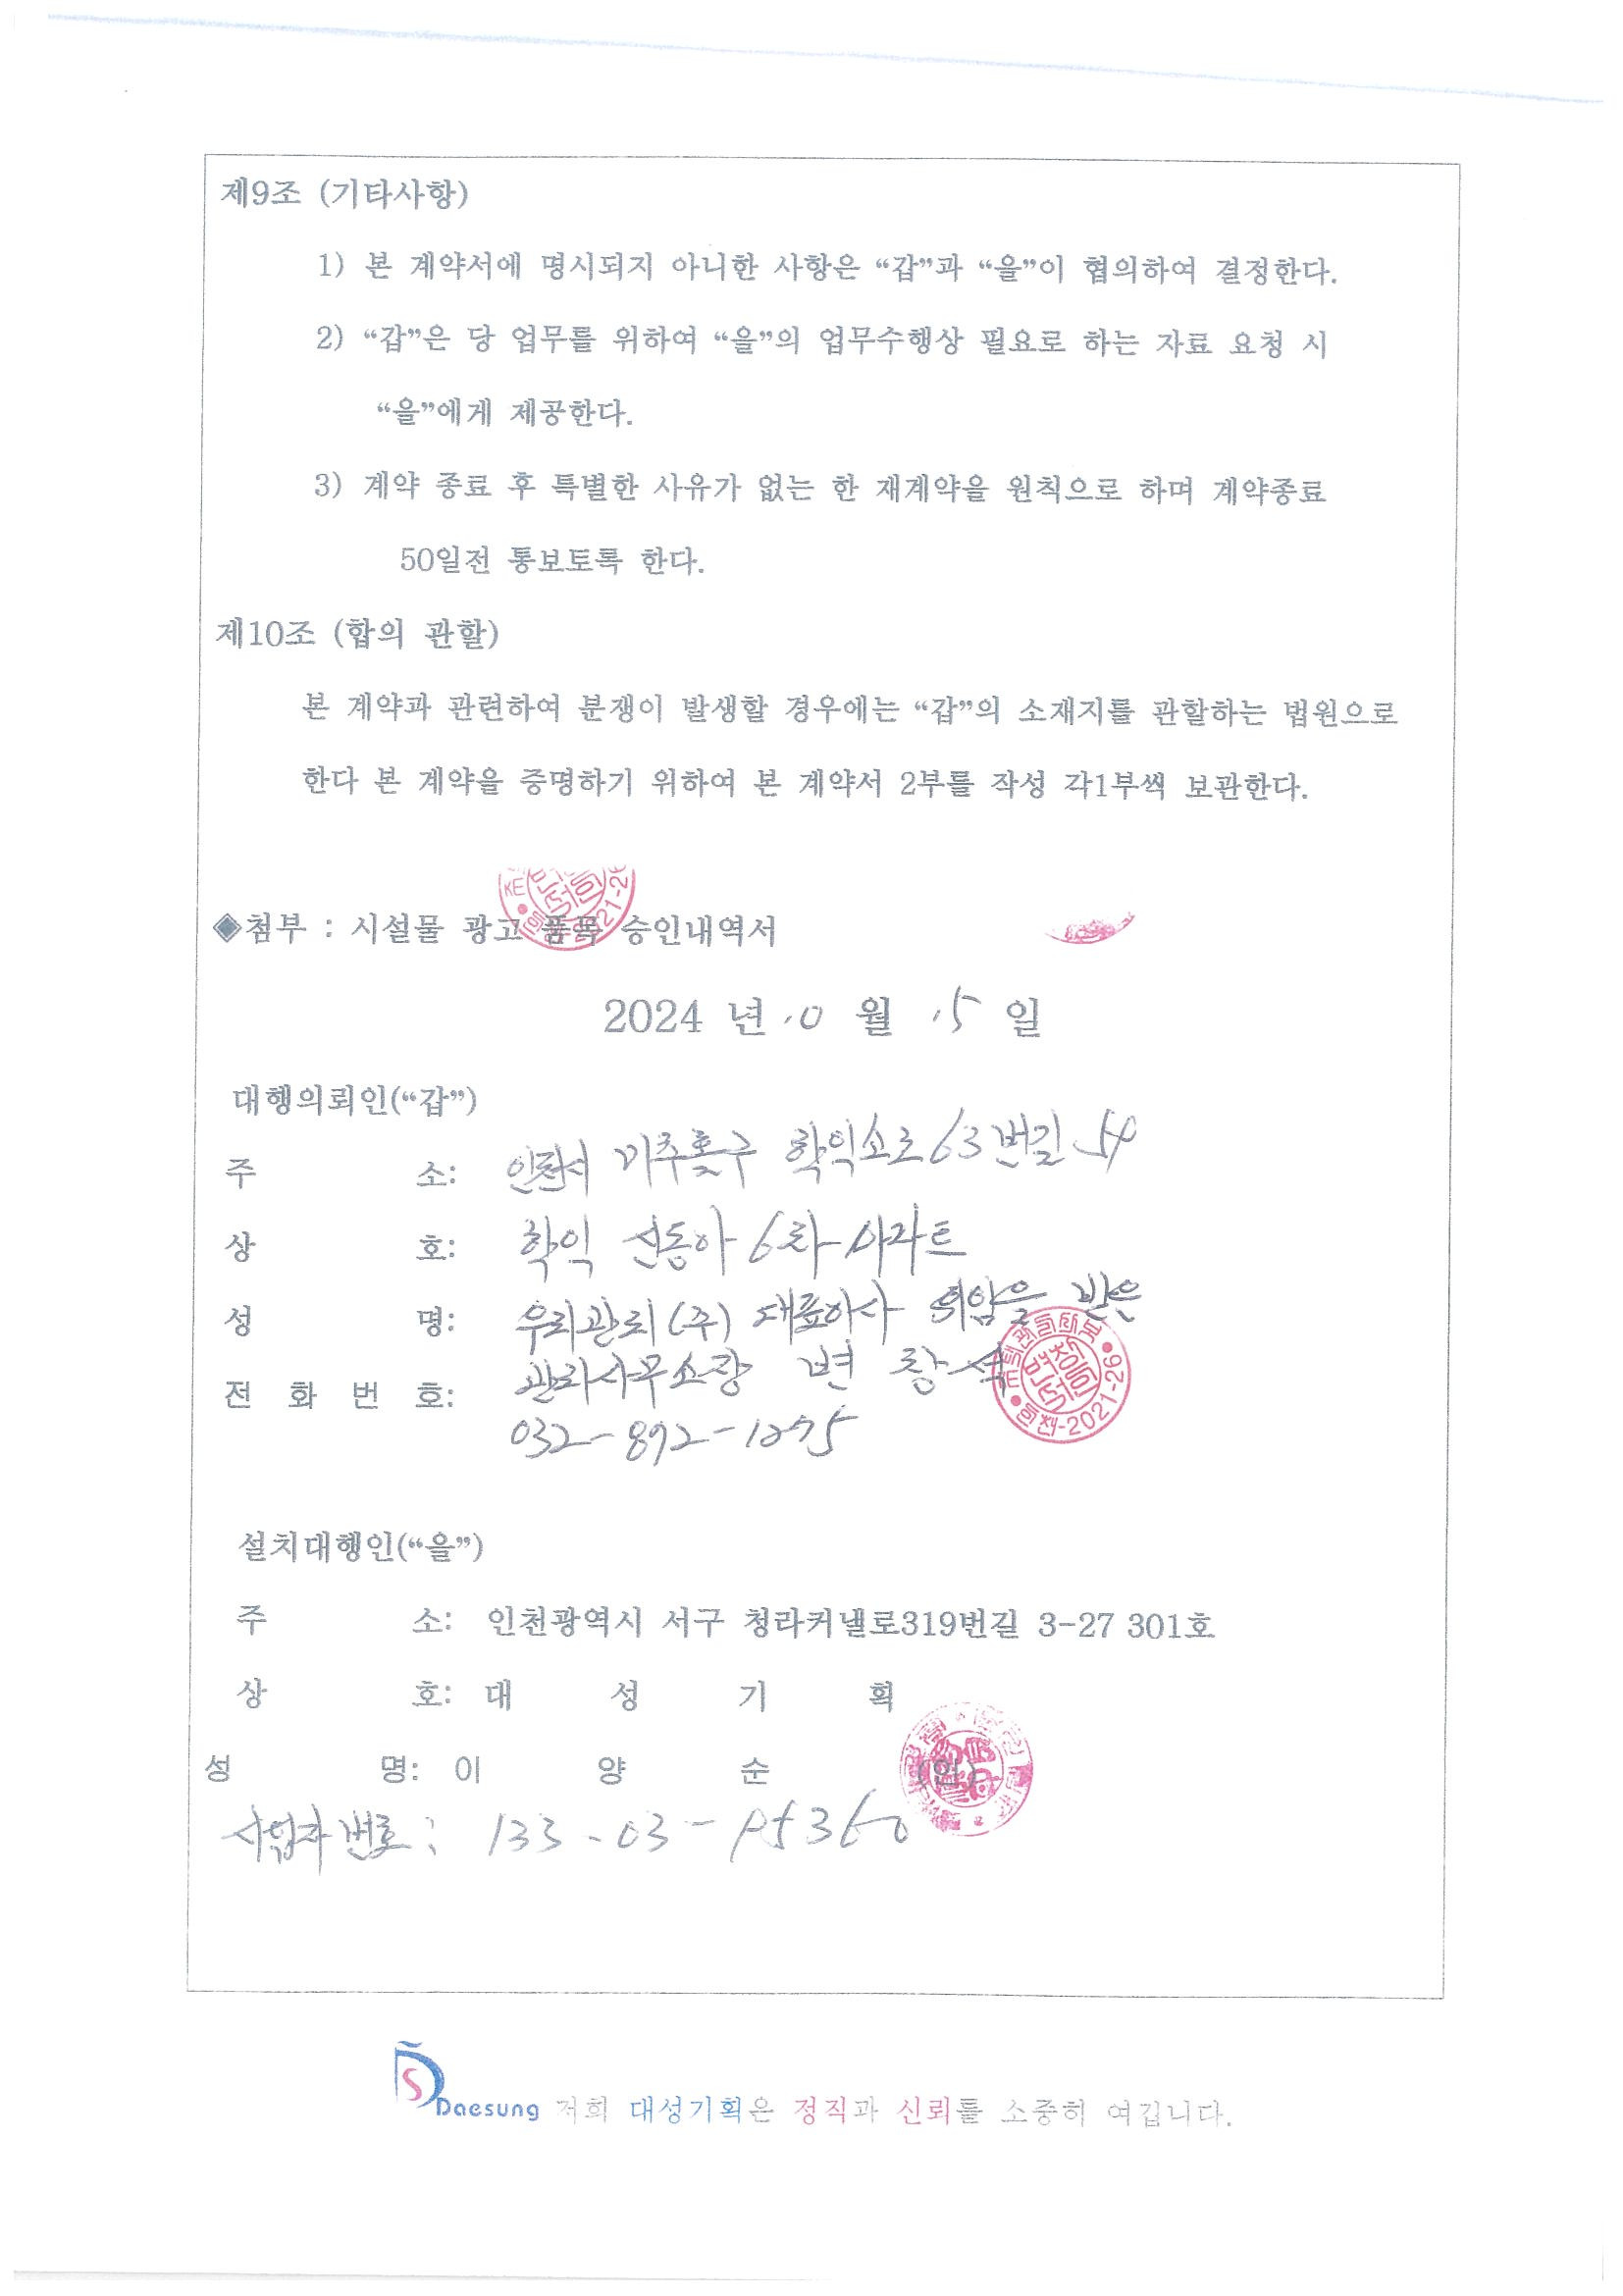 제9조 (기타사항)
1) 본 계약서에 명시되지 아니한 사항은 “갑”과 “을”이 협의하여 결정한다.
2) “갑”은 당 업무를 위하여 “을”의 업무수행상 필요로 하는 자료 요청 시
“을”에게 제공한다.
3) 계약 종료 후 특별한 사유가 없는 한 재계약을 원칙으로 하며 계약종료
50일전 통보토록 한다.
제10조 (합의 관할)
본 계약과 관련하여 분쟁이 발생할 경우에는 “갑”의 소재지를 관할하는 법원으로
한다 본 계약을 증명하기 위하여 본 계약서 2부를 작성 각1부씩 보관한다.
◈첨부 : 시설물 광고 품목 승인내역서
2024 년 10 월 15 일
대행의뢰인(“갑”)
주 소: 미추홀구 학익소로63번길 54
상 호: 학익 신동아 6차 아파트
성 명: 우리관리(주) 대표이사 위임을 받은
관리사무소장 변 창 석
전 화 번 호: 032-892-1275
설치대행인(“을”)
주 소: 인천광역시 서구 청라커낼로319번길 3-27 301호
상 호: 대 성 기 획
성 명: 이 양 순 (인)
사업자번호: 133-03-
Daesung 저희 대성기획은 정직과 신뢰를 소중히 여깁니다.